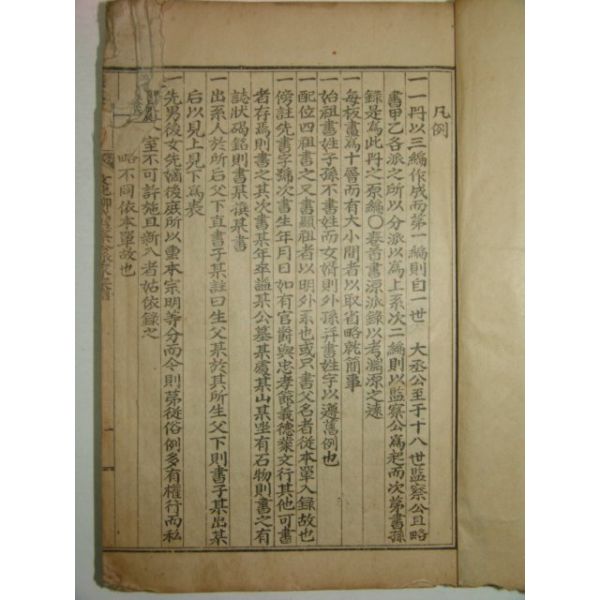 凡例
一一丹以三編作成而第一編則自一世 大丞公至于十八世監察公且略
書甲乙各派之所以分派以為上系次二編則以監察公為起而次第書孫
錄是為此丹之原編〇卷首書源派錄以考淵源之遠
一每板畫為十層而有大小間者以取省略就簡事
一始祖書姓子孫不書姓而女婿則外孫并書姓字以遵舊例也
一配位四祖書之又書顯祖者以明外系也或只書父名者從本單入錄故也
一傍註先書字號次書生年月日如有官爵與忠孝節義德業文行其他可書
者存焉則書之其次書某年卒諡某公墓某處某山某坐有石物則書之有
誌狀碣銘則書某撰某書
一出系人於所后父下直書子某註曰生父某於其所生父下則書子某出某
后以見上見下為表
一先男後女先嫡後庶所以重本宗明等分而今則第從俗例多有權行而私
室不可許施且新入者姑依錄之
略不同依本單故也